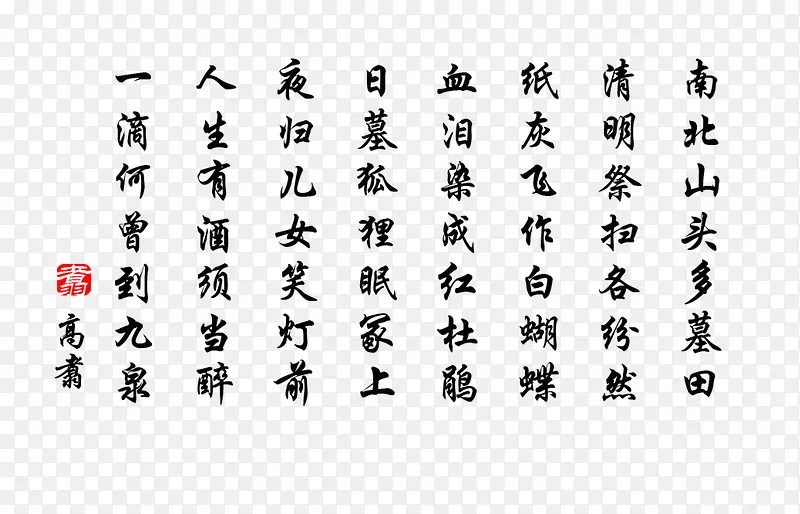 南北山头多墓田
清明祭扫各纷然
纸灰飞作白蝴蝶
血泪染成红杜鹃
日墓狐狸眠冢上
夜归儿女笑灯前
人生有酒须当醉
一滴何曾到九泉
高翥
翥